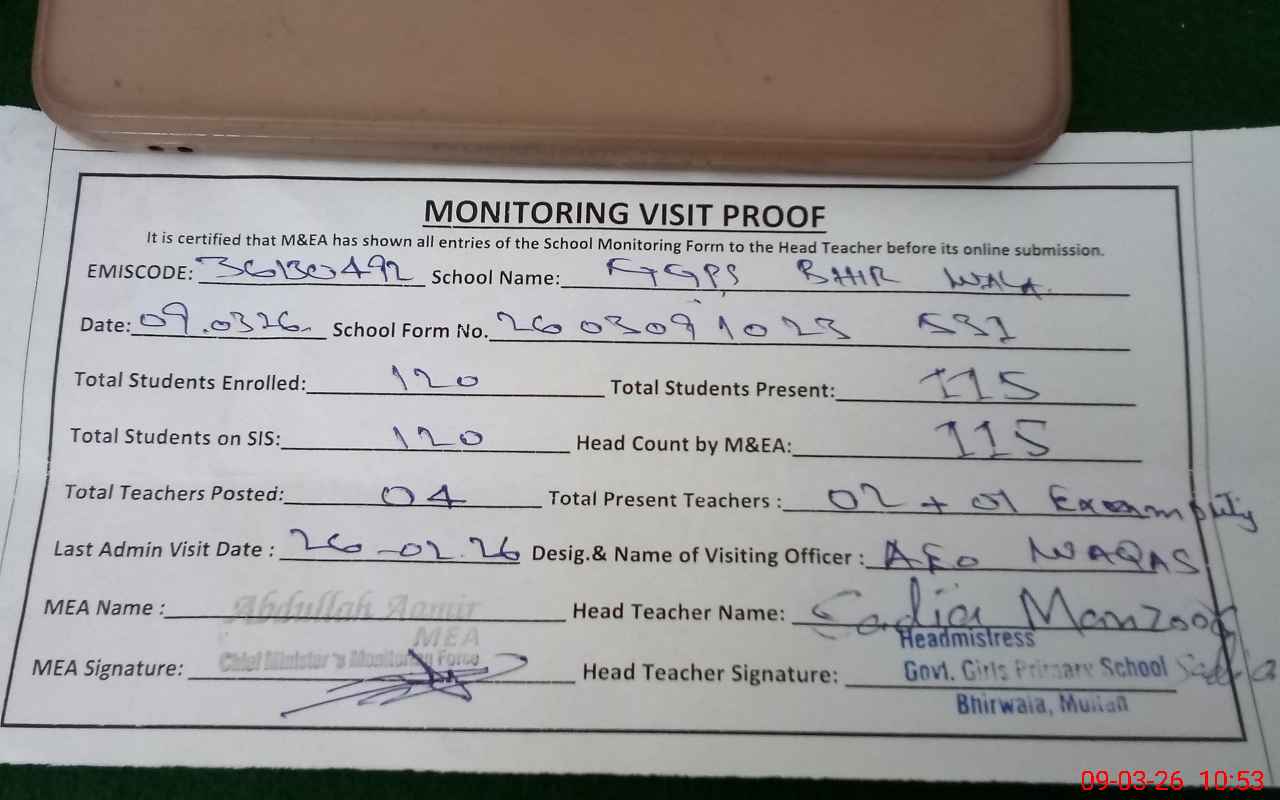 MONITORING VISIT PROOF
It is certified that M&EA has shown all entries of the School Monitoring Form to the Head Teacher before its online submission.
EMISCODE: 36130492 School Name: GGPS BHIR WALA.
Date: 09.0326. School Form No. 2603091023 531
Total Students Enrolled: 120 Total Students Present: 115
Total Students on SIS: 120 Head Count by M&EA: 115
Total Teachers Posted: 04 Total Present Teachers : 02 + 01
Last Admin Visit Date : 26-02.26 Desig.& Name of Visiting Officer : AEO WAQAS
MEA Name : Abdullah Aamir Head Teacher Name: Sadia Manzoor
MEA
Headmistress
Chief Minister's Monitoring Force
MEA Signature: Head Teacher Signature: Sadia
Govt. Girls Primary School
Bhirwala, Multan
09-03-26 10:53